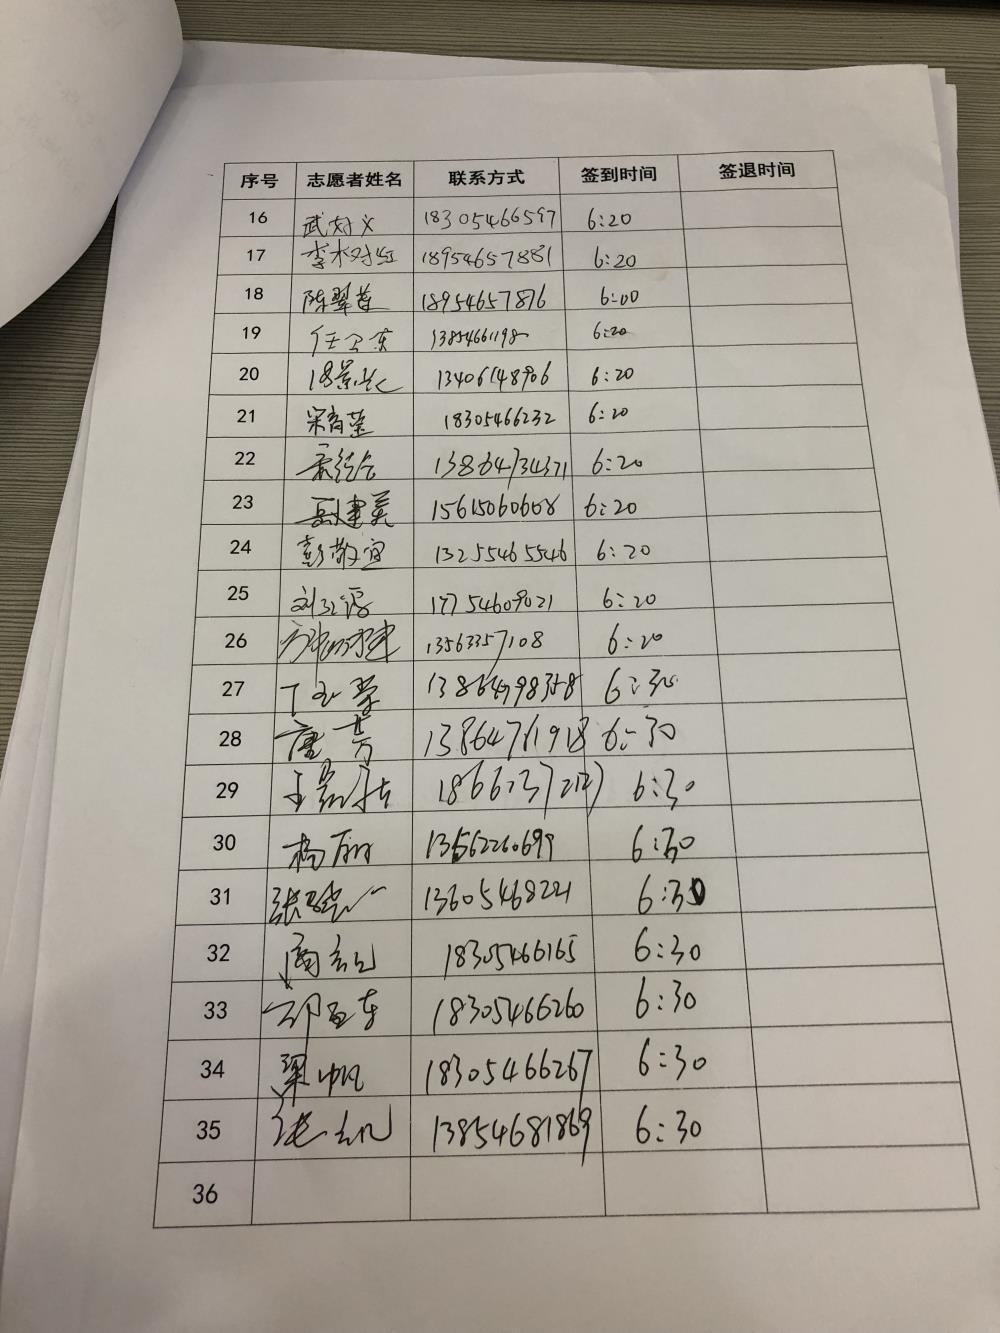 序号 志愿者姓名 联系方式 签到时间 签退时间
16 武 义 18305466597 6:20
17 李 红 18954657881 6:20
18 陈翠莲 18954657876 6:00
19 任卫东 13854661198 6:20
20 13406148906 6:20
21 宋育莹 18305466232 6:20
22 13864734371 6:20
23 赵建英 15615060608 6:20
24 彭敬宜 13255465546 6:20
25 刘江海 17754609021 6:20
26 13563357108 6:20
27 丁玉 13864798358 6:30
28 唐芳 13864761918 6:30
29 王 6:30
30 杨丽 13562260699 6:30
31 张晓 13605468221 6:30
32 商 18305466165 6:30
33 邱亚东 18305466260 6:30
34 梁帆 18305466267 6:30
35 张 13854681869 6:30
36